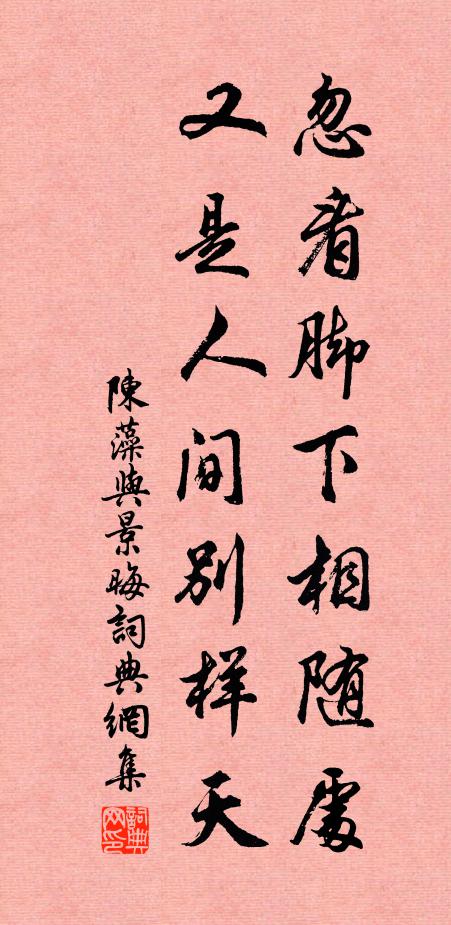 忽看脚下相随處
又是人间别样天
陳藻與景晦詞典網集
詞典网印